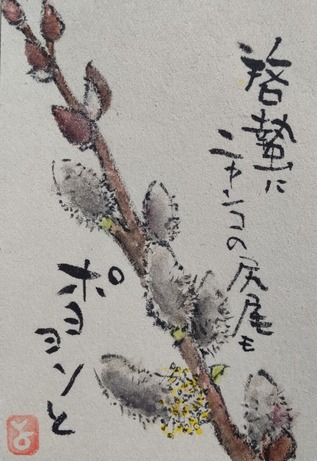 啓蟄に
ニャンコの尻尾も
ポヨヨンと